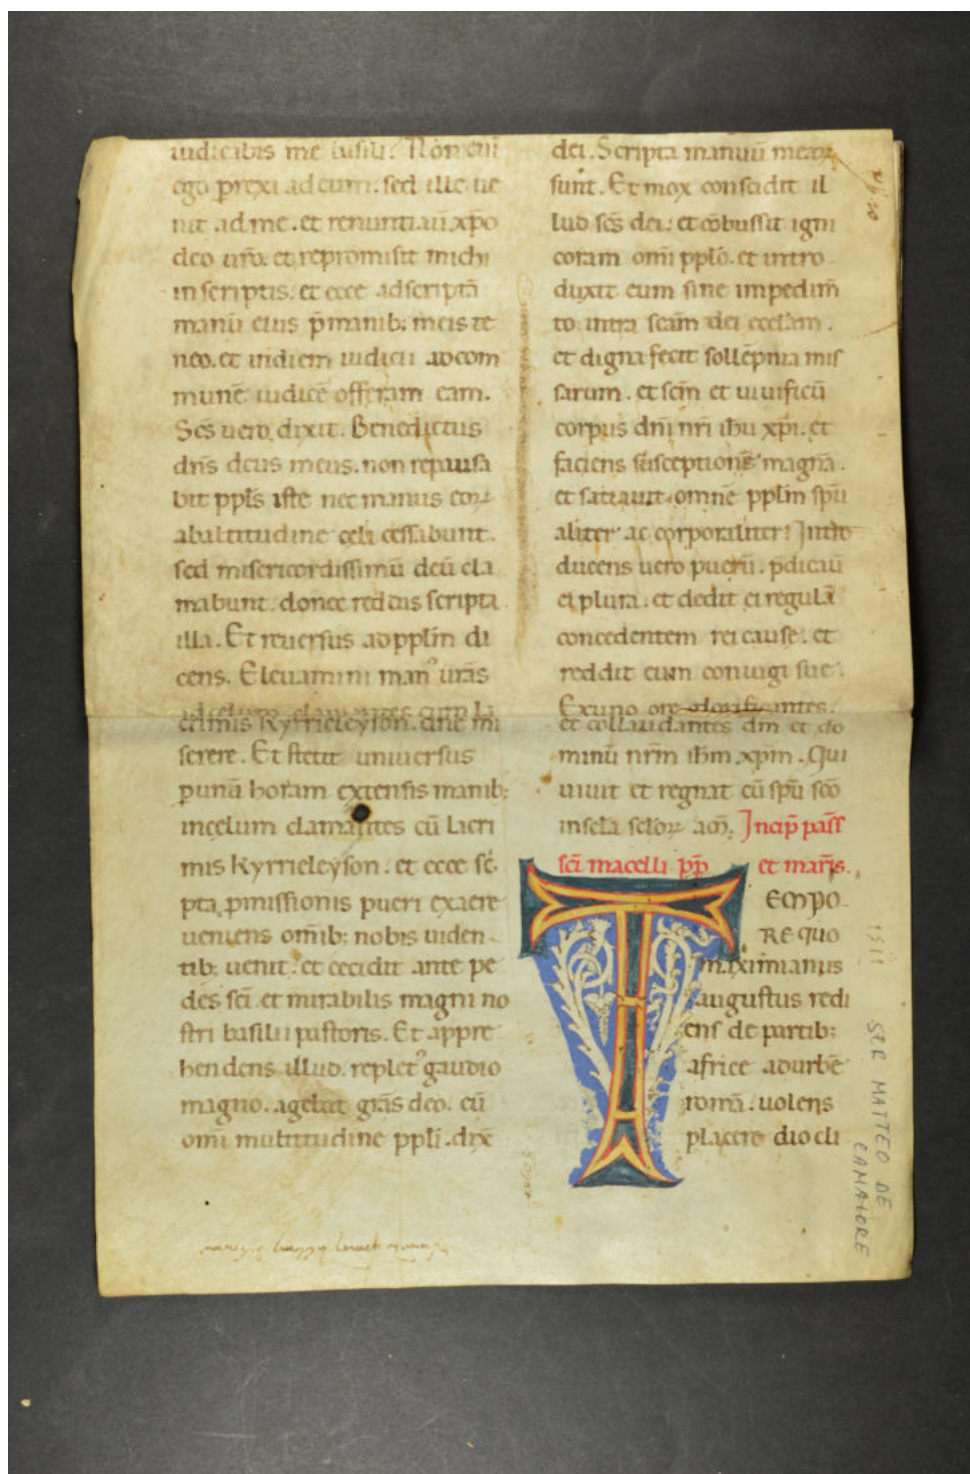 iudicibis me basili. Non eni
ego prexi ad eum. sed ille ue
nit ad me. et renuntiauit xp̄o
deo ur̄o. et repromisit michi
in scriptis. et ecce adscriptā
manū eius p̄ manib; meis te
neo. et indiem iudicii ad com
munē iudicē offeram eam.
Sc̄s uero dixit. Benedictus
dn̄s deus meus. non repausa
bit ppl̄s iste nec manus eoꝝ
abaltitudine celi cessabunt.
sed misericordissimū deū cla
mabunt. donec reddas scripta
illa. Et reuersus ad ppl̄m di
cens. Eleuamini man᾽ urās
ad celum clamantes cum la
crimis kyrrieleyson. dn̄e mi
serere. Et stetit uniuersus
ꝑ unā horam extensis manib;
incelum clamantes cū lacri
mis kyrrieleyson. et ecce sc̄
pta ꝓmissionis pueri ex aere
ueniens om̄ib; nobis uiden
tib; uenit. et cecidit ante pe
des sc̄i et mirabilis magni no
stri basilii pastoris. Et appre
hendens illud. replet᾽ gaudio
magno. agebat grās deo. cū
omi multitudine ppl̄i. dix̄
dei. Scripta manuū mearum
sunt. Et mox conscidit il
lud sc̄s dei. et cōbussit igni
coram omi ppl̄o. et intro
duxit eum sine impedim̄
to intra sc̄am dei eccl̄am.
et digna fecit sollēpnia mis
sarum. et sc̄m et uiuificū
corpus dn̄i nr̄i ihū xp̄i. et
faciens susceptionē magnā.
et satiauit omnē ppl̄m sp̄u
aliter ac corporaliter. Intro
ducens uero puerū. p̄dicauit
ei plura. et dedit ei regulā
concedentem rei cause. et
reddit eum coniugi sue.
Ex uno ore glorificantes.
et collaudantes dm̄ et do
minū nr̄m ihm̄ xpm̄. Qui
uiuit et regnat cū sp̄u sc̄o
in scl̄a scl̄oꝝ am̄. Incip̄ pass̄
sc̄i macelli pp̄ et mar̄is.
TEMPO
RE quo
maximianus
augustus redi
ens de partib;
africe ad urbē
romā. uolens
placere diocli
1511
SER MATTEO DE
CAMAIORE